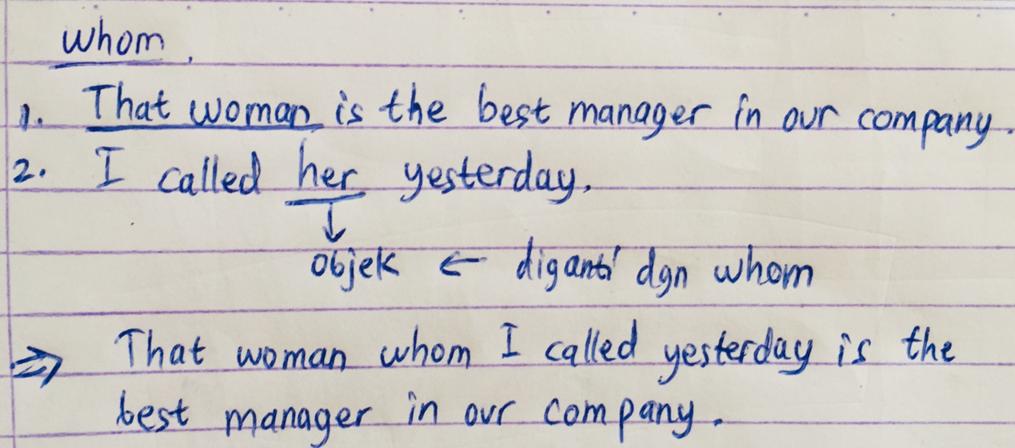 whom
1. That woman is the best manager in our company.
2. I called her yesterday.
↓
objek ← diganti dgn whom
⇒ That woman whom I called yesterday is the
best manager in our company.